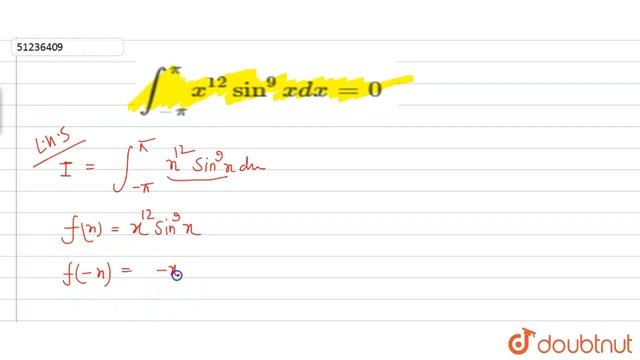 51236409
∫_{-π}^{π} x^{12} sin^9 xdx = 0
L.H.S
I = ∫_{-π}^{π} x^{12} sin^9 x dx
f(x) = x^{12} sin^9 x
f(-x) = -x
doubtnut